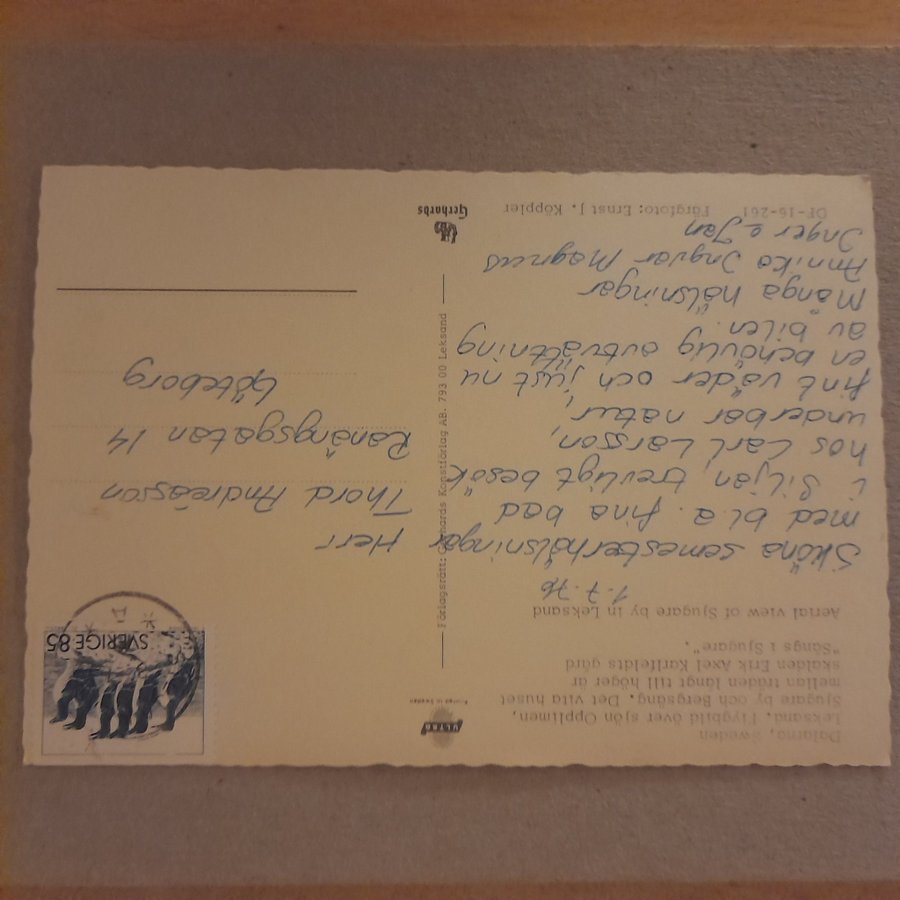 Dalarna, Sweden
Leksand. Flygbild över sjön Opplimen,
Sjugare by och Bergsäng. Det vita huset
mellan träden längst till höger är
skalden Erik Axel Karlfeldts gård
"Sångs i Sjugare".
Aerial view of Sjugare by in Leksand
1.7.76
Sköna semesterhälsningar
med bl.a. fina bad
i Siljan, trevligt besök
hos Carl Larsson,
underbar natur,
fint väder och just nu
en behövlig avtvättning
av bilen.
Många hälsningar
Annika Ingvar Magnus
Inger o Jan
OF-16-261 Färgfoto: Ernst J. Köppler
ULTRA
Printed in Sweden
Förlagsrätt: Gerhards Konstförlag AB. 793 00 Leksand
Gerhards
SVERIGE 85
Herr
Thord Andreasson
Ranängsgatan 14
Göteborg